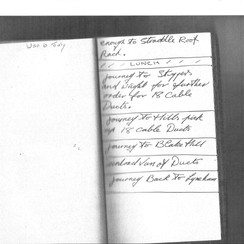 enough to Straddle Roof
Rack.
LUNCH
journey to Skyges
and Sight for further
order for 18 Cable
Ducts.
journey to Hills pick
up 18 Cable Ducts
journey to Blake Hill
unload Van of Ducts
journey Back to Lyneham